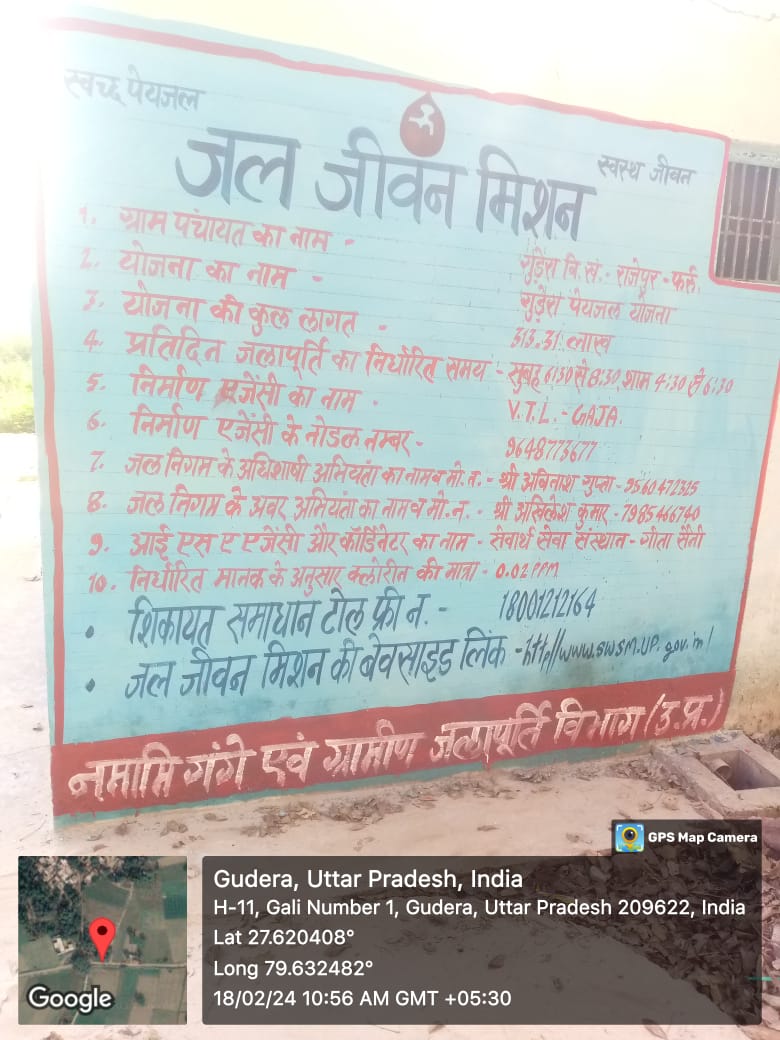 स्वच्छ पेयजल
स्वस्थ जीवन
जल जीवन मिशन
1. ग्राम पंचायत का नाम - गुड़ेरा वि.खं.- राजेपुर - फर्रु.
2. योजना का नाम - गुड़ेरा पेयजल योजना
3. योजना की कुल लागत - 313.31 लाख
4. प्रतिदिन जलापूर्ति का निर्धारित समय - सुबह 6:30 से 8:30, शाम 4:30 से 6:30
5. निर्माण एजेंसी का नाम - V.T.L.-GAJA.
6. निर्माण एजेंसी के नोडल नम्बर - 9648773677
7. जल निगम के अधिशाषी अभियंता का नाम व मो.न. - श्री अविनाश गुप्ता - 9560472325
8. जल निगम के अवर अभियंता का नाम व मो.न. - श्री अखिलेश कुमार - 7985466740
9. आई एस ए एजेंसी और कॉर्डिनेटर का नाम - सेवार्थ सेवा संस्थान - गीता सैनी
10. निर्धारित मानक के अनुसार क्लोरीन की मात्रा - 0.02 PPM
• शिकायत समाधान टोल फ्री न.- 18001212164
• जल जीवन मिशन की बेवसाइड लिंक - http//www.swsm.UP.gov.in/
नमामि गंगे एवं ग्रामीण जलापूर्ति विभाग (उ.प्र.)
GPS Map Camera
Gudera, Uttar Pradesh, India
H-11, Gali Number 1, Gudera, Uttar Pradesh 209622, India
Lat 27.620408°
Long 79.632482°
18/02/24 10:56 AM GMT +05:30
Google